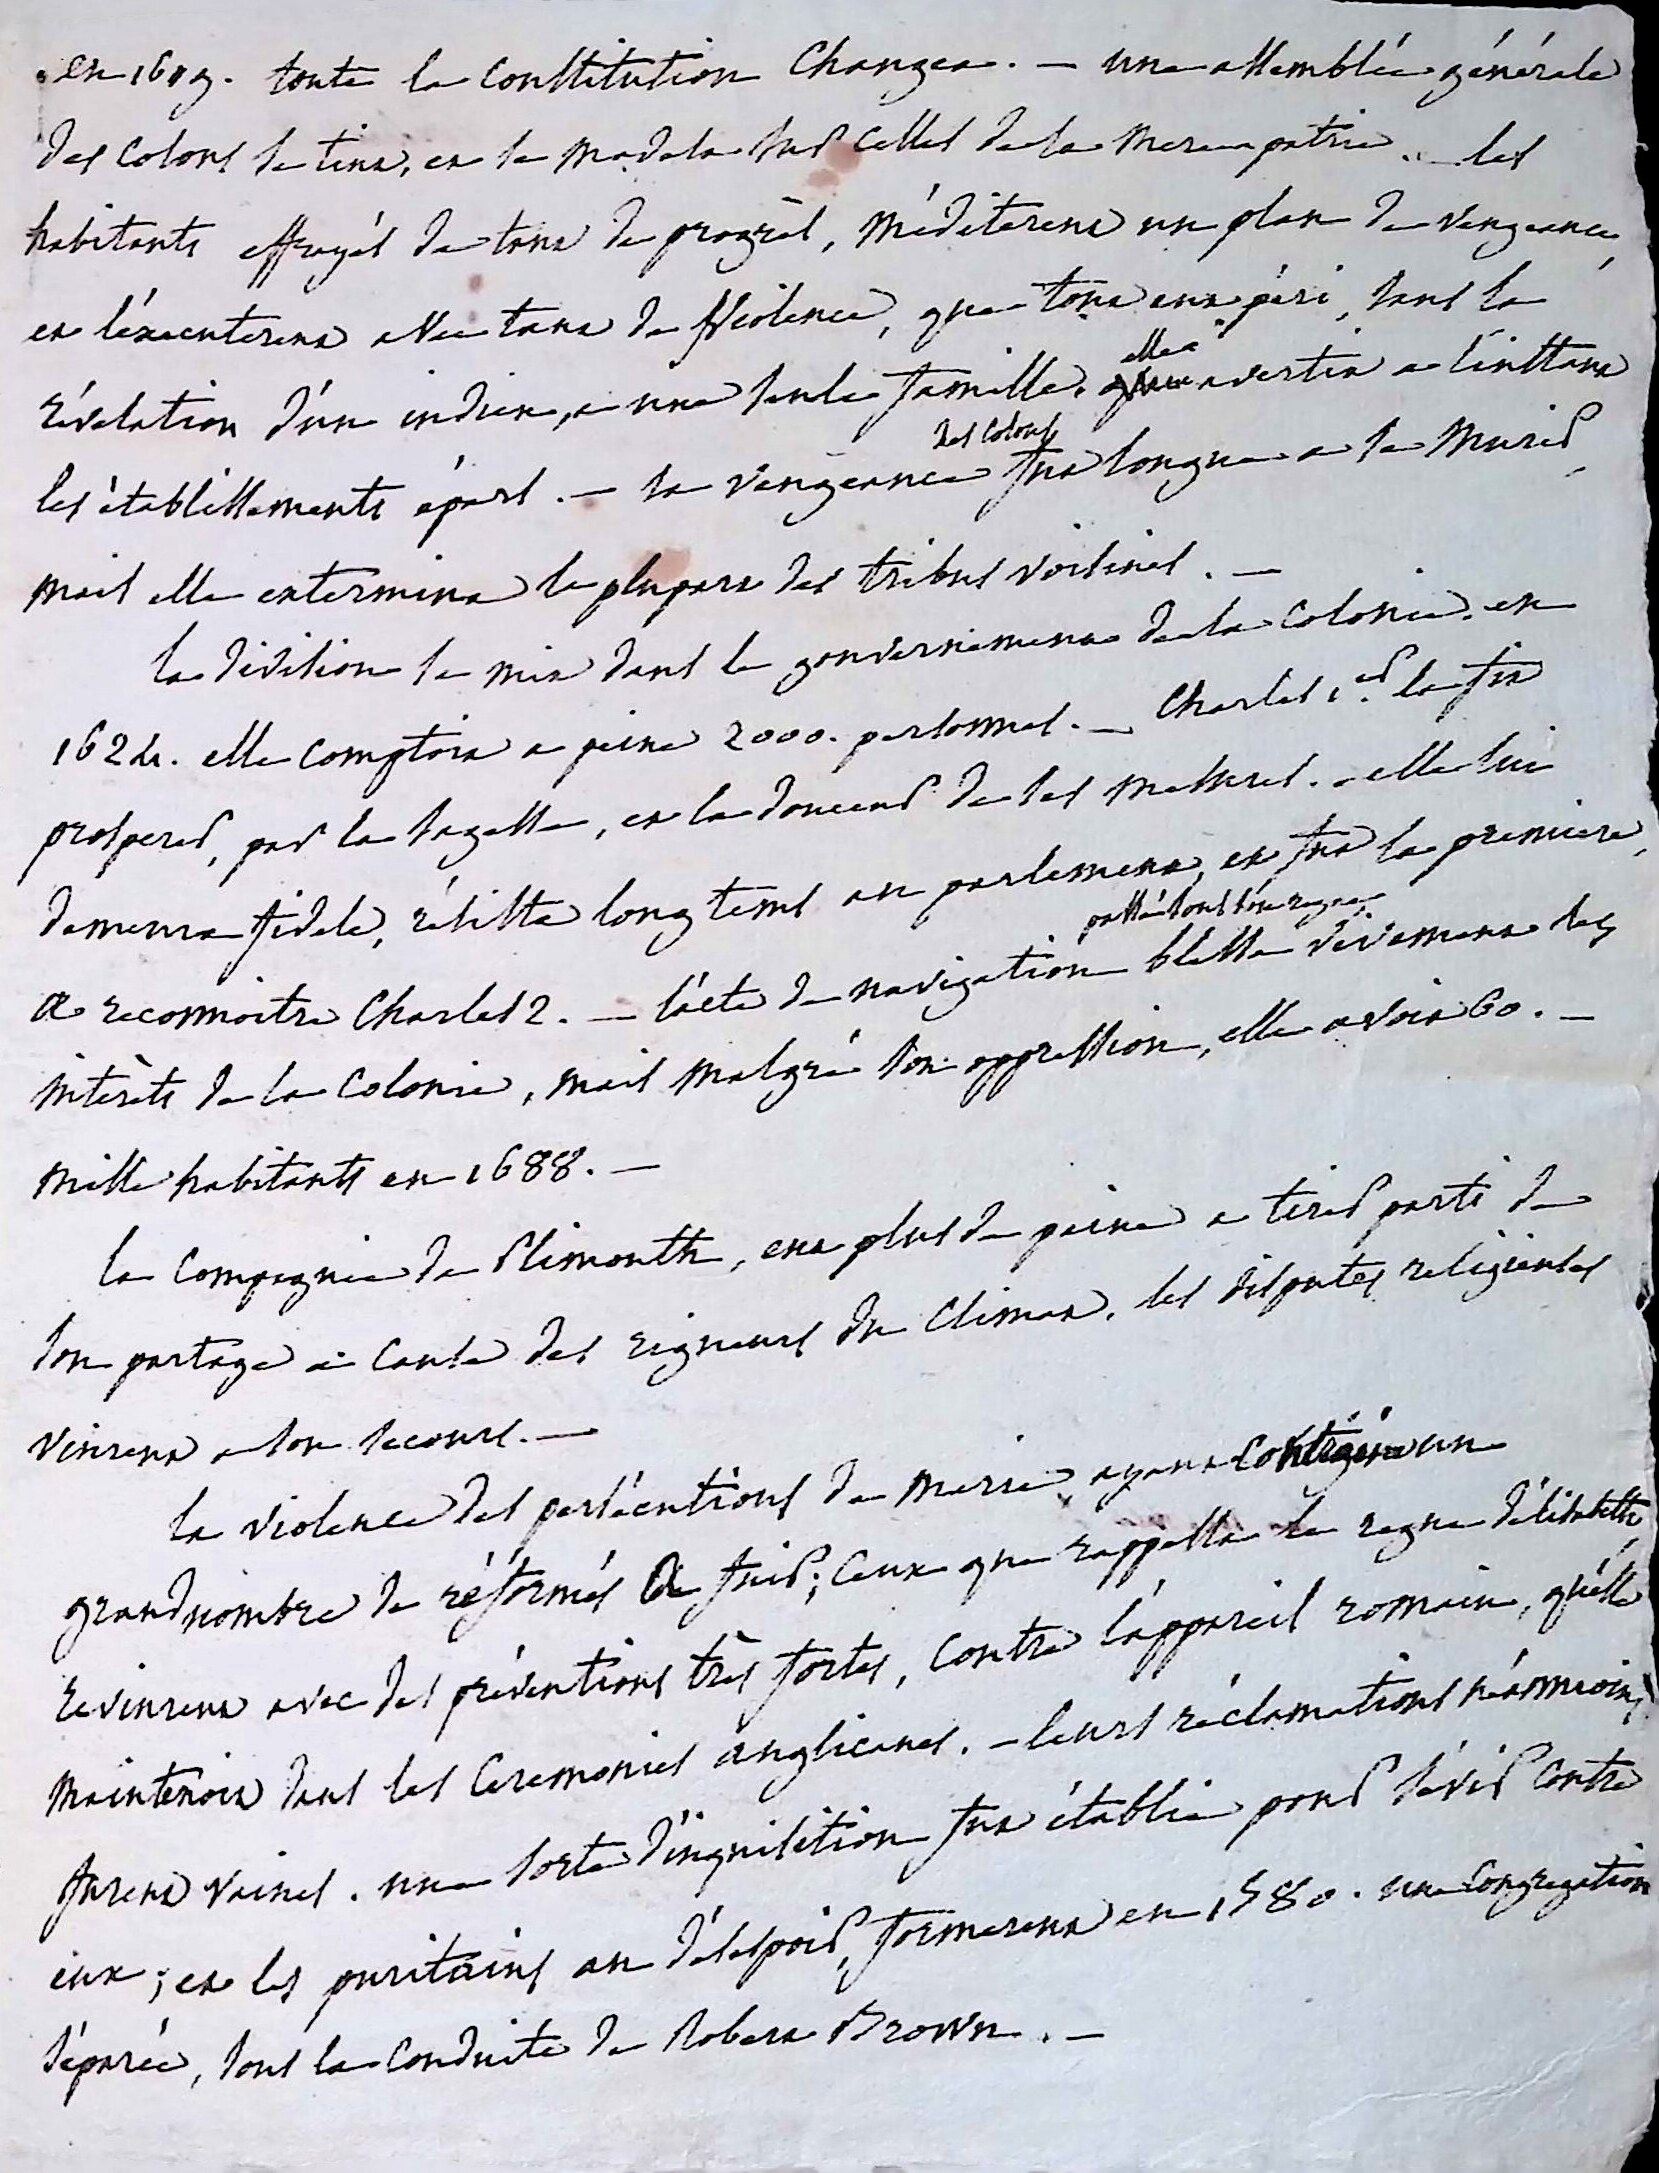 en 1619. toute la constitution changea. — une assemblée générale
des colons se tint, et se modela sur celles de la mere patrie. — les
habitants effrayés de tant de progrès, méditerent un plan de vengeance,
et l'éxecuterent avec tant de violence, que tout eut péri, sans la
révélation d'un indien, a une seule famille. elle avertit a l'instant
les établissements épars. — la vengeance des colons fut longue a se murir,
mais elle extermina la plupart des tribus voisines. —
la division se mit dans le gouvernement de la colonie. en
1624. elle comptoit a peine 2000. personnes. — Charles 1.er la fit
prosperer, par la sagesse, et la douceur de ses mesures. elle lui
demeura fidele, résista long tems au parlement, et fut la premiere
a reconnoitre Charles 2. — l'acte de navigation passé sous son regne blessa vivement les
intérêts de la colonie, mais malgré son oppression, elle avoit 60. —
mille habitants en 1688. —
la compagnie de Plimouth, eut plus de peine a tirer parti de
son partage a cause des rigueurs du climat. les disputes religieuses
vinrent a son secours. —
la violence des persécutions de marie, ayant contraint un
grand nombre de réformés de fuir; ceux que rappella le regne d'élisabeth
revinrent avec des préventions très fortes, contre l'appareil romain, qu'elle
maintenoit dans les ceremonies anglicanes. — leurs réclamations néanmoins
furent vaines. une sorte d'inquisition fut établie pour sévir contre
eux; et les puritains au désespoir, formerent en 1580. une congregation
séparée, sous la conduite de Robert Brown. —